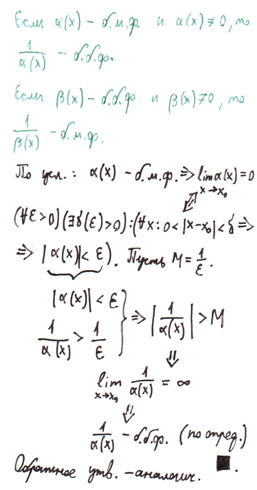 Если α(x) – б.м.ф. и α(x) ≠ 0, то
1/α(x) – б.б.ф.
Если β(x) – б.б.ф. и β(x) ≠ 0, то
1/β(x) – б.м.ф.
По усл.: α(x) – б.м.ф. ⇒ lim x→x₀ α(x) = 0
⇕
(∀ε>0)(∃δ(ε)>0):(∀x: 0<|x-x₀|<δ ⇒
⇒ |α(x)| < ε). Пусть M = 1/ε.
|α(x)| < ε
1/α(x) > 1/ε } ⇒ |1/α(x)| > M
⇓
lim x→x₀ 1/α(x) = ∞
⇓
1/α(x) – б.б.ф. (по опред.)
Обратное утв. – аналогич. ■.